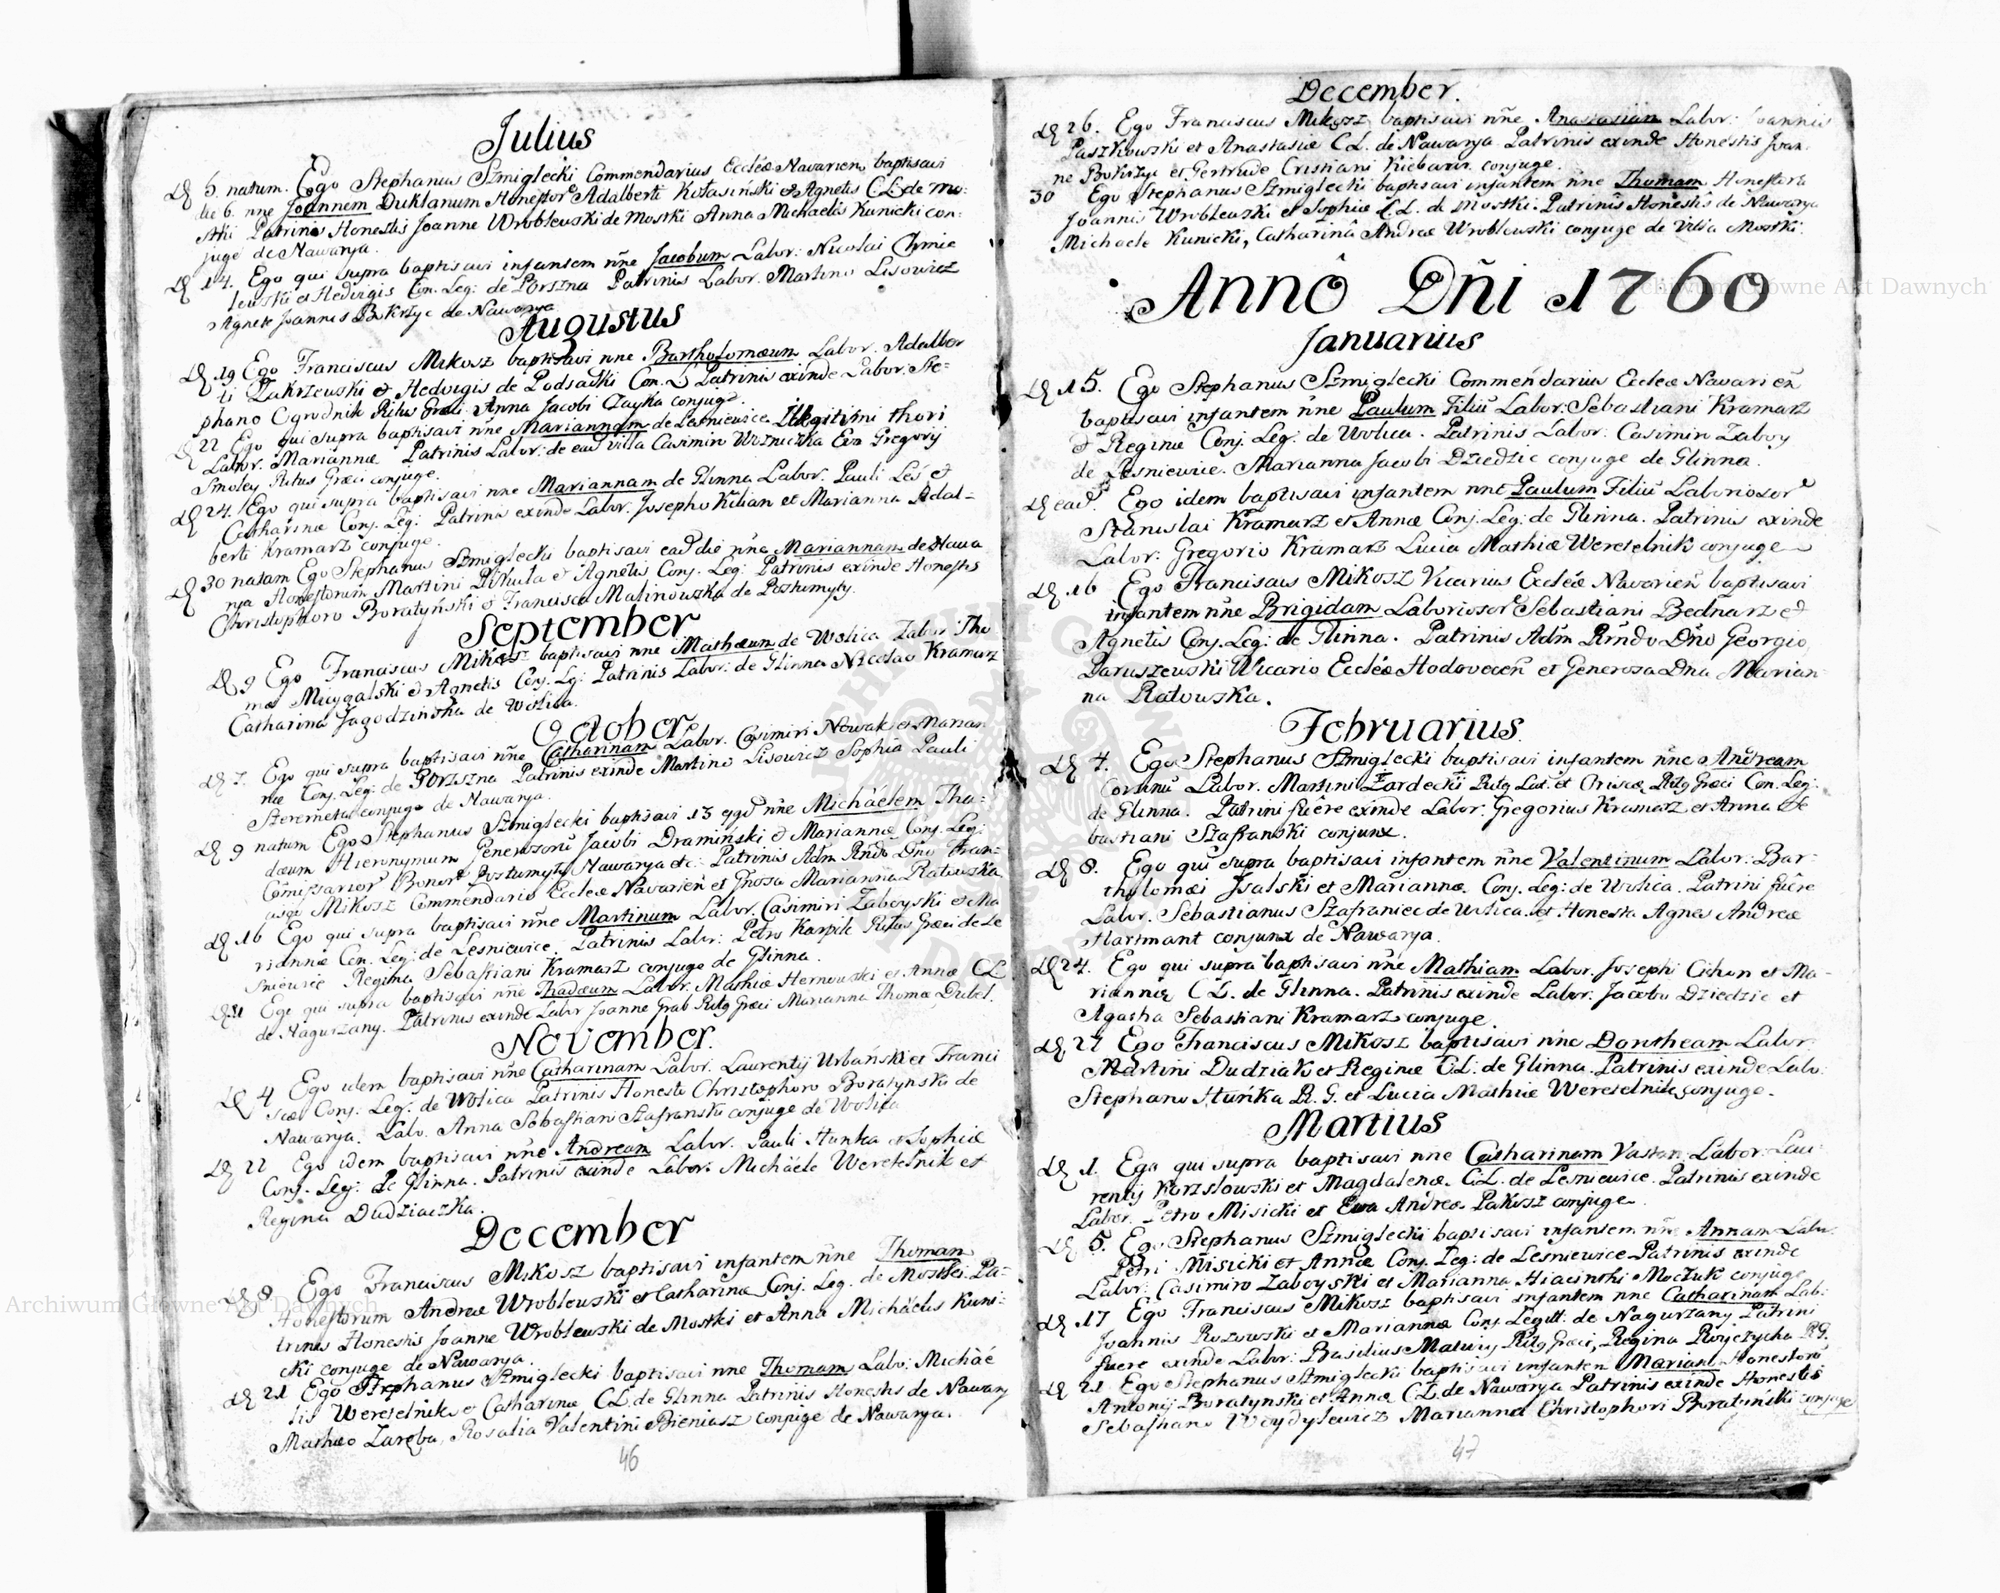 Julius
D 5. natum. Ego Stephanus Szmiglecki Commendarius Eccleæ Navarien baptisavi
die 6. nne Joannem Duklanum Honestor Adalberti Kułasiński et Agnetis C.L. de Mo-
stki Patrinis Honestis Joanne Wroblewski de Mostki Anna Michaelis Kunicki con-
juge de Nawarya.
D 14. Ego qui supra baptisavi infantem nne Jacobum Labor: Nicolai Chmie
lewski et Hedvigis Con. Leg: de Porszna Patrinis Labor. Martino Lisowicz
Agnete Joannis Pokrzyc de Nawarya
Augustus
D 19 Ego Franciscus Mikosz baptisavi nne Bartholomæum Labor. Adalber
ti Zakrzewski et Hedvigis de Podsadki Con. L. Patrinis exinde Labor. Ste-
phano Ogrodnik Ritus Græci. Anna Jacobi Czayka conjuge.
D 22 Ego qui supra baptisavi nne Mariannam de Lesniewice Illegitimi thori
Labor. Mariannæ Patrinis Labor: de ead villa Casimiro Wozniczka Eva Gregorij
Smoley Ritus Græci conjuge.
D 24. Ego qui supra baptisavi nne Mariannam de Glinna Labor. Pauli Les et
Catharinæ Conj. Leg: Patrinis exinde Labor. Josepho Kilian et Marianna Adal-
berti Kramarz conjuge.
D 30 natam Ego Stephanus Szmiglecki baptisavi ead die nne Mariannam de Nawa
rya Honestorum Martini Pikuła et Agnetis Conj. Leg: Patrinis exinde Honestis
Christophoro Boratyński et Francisca Malinowska de Postumyty.
September
D 9 Ego Franciscus Mikosz baptisavi nne Mathæum de Wolica Labor: Tho
mæ Migalski et Agnetis Conj. Lg: Patrinis Labor: de Glinna Nicolao Kramarz
Catharina Jagodzinska de Wolica.
October
D 7. Ego qui supra baptisavi nne Catharinam Labor. Casimiri Nowak et Marian
næ Conj. Leg: de Porszna Patrinis exinde Martino Lisowicz Sophia Pauli
conjuge de Nawarya.
D 9 natum Ego Stephanus Szmiglecki baptisavi 13 nne Michaelem Tha-
dæum Hieronymum Generosoru Jacobi Dramiński et Mariannæ Conj. Leg:
Comissarior Bonor Postumyty Nawarya etc: Patrinis Adm Rndo Dno Fran-
cisco Mikosz Commendario Eccleæ Navarien et Gnosa Marianna Ratowska
D 16 Ego qui supra baptisavi nne Martinum Labor. Casimiri Zaboyski et Ma
riannæ Con. Leg: de Lesniewice. Patrinis Labor: Petro Karpik Ritus Græci de Le
sniewice Regina Sebastiani Kramarz conjuge de Glinna.
D 31 Ego qui supra baptisavi nne Thadæum Labor. Mathiæ Hernowski et Annæ C.L
de Nagurzany. Patrinis exinde Labor Joanne Grab Ritg Græci Marianna Thomæ Dubel.
November.
D 4 Ego idem baptisavi nne Catharinam Labor. Laurentij Urbański et Franci
scæ Conj. Leg: de Wolica Patrinis Honesto Christophoro Boratynski de
Nawarya. Labo. Anna Sebastiani Szafranski conjuge de Wolica
D 22 Ego idem baptisavi nne Andream Labor. Pauli Hunka et Sophiæ
Conj. Leg: de Glinna. Patrinis exinde Labor: Michaele Weretelnik et
Regina Dudziaczka.
December
D 8. Ego Franciscus Mikosz baptisavi infantem nne Thomam
Honestorum Andreæ Wroblewski et Catharinæ Conj. Leg. de Mostki. Pa-
trinis Honestis Joanne Wroblewski de Mostki et Anna Michaelis Kuni-
cki conjuge de Nawarya.
D 21 Ego Stephanus Szmiglecki baptisavi nne Thomam Labo: Michae
lis Weretelnik et Catharinæ C.L. de Glinna Patrinis Honestis de Nawary
Matheo Zaręba, Rosalia Valentini Bieniasz conjuge de Nawarya.
46
December.
D 26. Ego Franciscus Mikosz baptisavi nne Anastasiam Labor: Joannis
Paszkowski et Anastasiæ C.L. de Nawarya Patrinis exinde Honestis Joan-
ne Pokrzyc et Gertrude Cristiani conjuge.
30 Ego Stephanus Szmiglecki baptisavi infantem nne Thomam Honestoru
Joannis Wroblewski et Sophiæ C.L. de Mostki. Patrinis Honestis de Nawarya
Michaele Kunicki, Catharina Andreæ Wroblewski conjuge de Villa Mostki.
Annô Dñi 1760
Januarius
D 15. Ego Stephanus Szmiglecki Commendarius Eccleæ Navarien
baptisavi infantem nne Paulum Filiu Labor: Sebastiani Kramarz
et Reginæ Conj. Leg: de Wolica. Patrinis Labor: Casimiro Zaboy
de Lesniewice. Marianna Jacobi Dziedzic conjuge de Glinna.
D ead. Ego idem baptisavi infantem nne Paulum Filiu Laboriosor
Stanislai Kramarz et Annæ Conj. Leg: de Glinna. Patrinis exinde
Labor: Gregorio Kramarz Lucia Mathiæ Weretelnik conjuge
D 16 Ego Franciscus Mikosz Vicarius Eccleæ Navarien baptisavi
infantem nne Brigidam Laboriosor Sebastiani Bednarz et
Agnetis Conj. Leg: de Glinna. Patrinis Adm Rndo Dno Georgio
Paruszewski Vicario Eccleæ Hodovecen et Generosa Dna Marian-
na Ratowska.
Februarius.
D 4. Ego Stephanus Szmiglecki baptisavi infantem nne Andream
Corsinu Labor. Martini Zardecki Ritg Lat. et Ritg Græci Con. Leg:
de Glinna. Patrini fuere exinde Labor. Gregorius Kramarz et Anna Se
bastiani Szafranski conjunx.
D 8. Ego qui supra baptisavi infantem nne Valentinum Labor: Bar-
tholomæi Jsalski et Mariannæ Conj. Leg: de Wolica. Patrini fuere
Labor. Sebastianus Szafraniec de Wolica. et Honesta Agnes Andreæ
Hartmant conjunx de Nawarya.
D 24. Ego qui supra baptisavi nne Mathiam Labor. Josephi Cichon et Ma-
riannæ C.L. de Glinna. Patrinis exinde Labor. Jacobo Dziedzic et
Agatha Sebastiani Kramarz conjuge.
D 27 Ego Franciscus Mikosz baptisavi nne Dorotheam Labor:
Martini Dudziak et Reginæ C.L: de Glinna. Patrinis exinde Labo.
Stephano Huńka R. G. et Lucia Mathiæ Weretelnik conjuge.
Martius
D 1. Ego qui supra baptisavi nne Catharinam Labor: Lau-
rentij Korzstowski et Magdalenæ C.L. de Lesniewice. Patrinis exinde
Labor. Petro Misicki et Ewa Andreæ Pakosz conjuge.
D 5. Ego Stephanus Szmiglecki baptisavi infantem nne Annam Labo.
Petri Misicki et Annæ Conj. Leg: de Lesniewice. Patrinis exinde
Labor: Casimiro Zaboyski et Marianna Hiacinthi Moczuk conjuge.
D 17 Ego Franciscus Mikosz baptisavi infantem nne Catharinam Lab:
Joannis Rozowski et Mariannæ Conj. Legitt. de Nagurzany Patrini
fuere exinde Labor: Basilius Matwiy Ritg Græci, Regina R.G.
D 21. Ego Stephanus Szmiglecki baptisavi infantem Mariam Honestoru
Antonij Boratynski et Annæ C.L. de Nawarya Patrinis exinde Honestis
Sebastiano Woydylewicz Marianna Christophori Boratyński conjuge
47
Archiwum Główne Akt Dawnych
Archiwum Główne Akt Dawnych